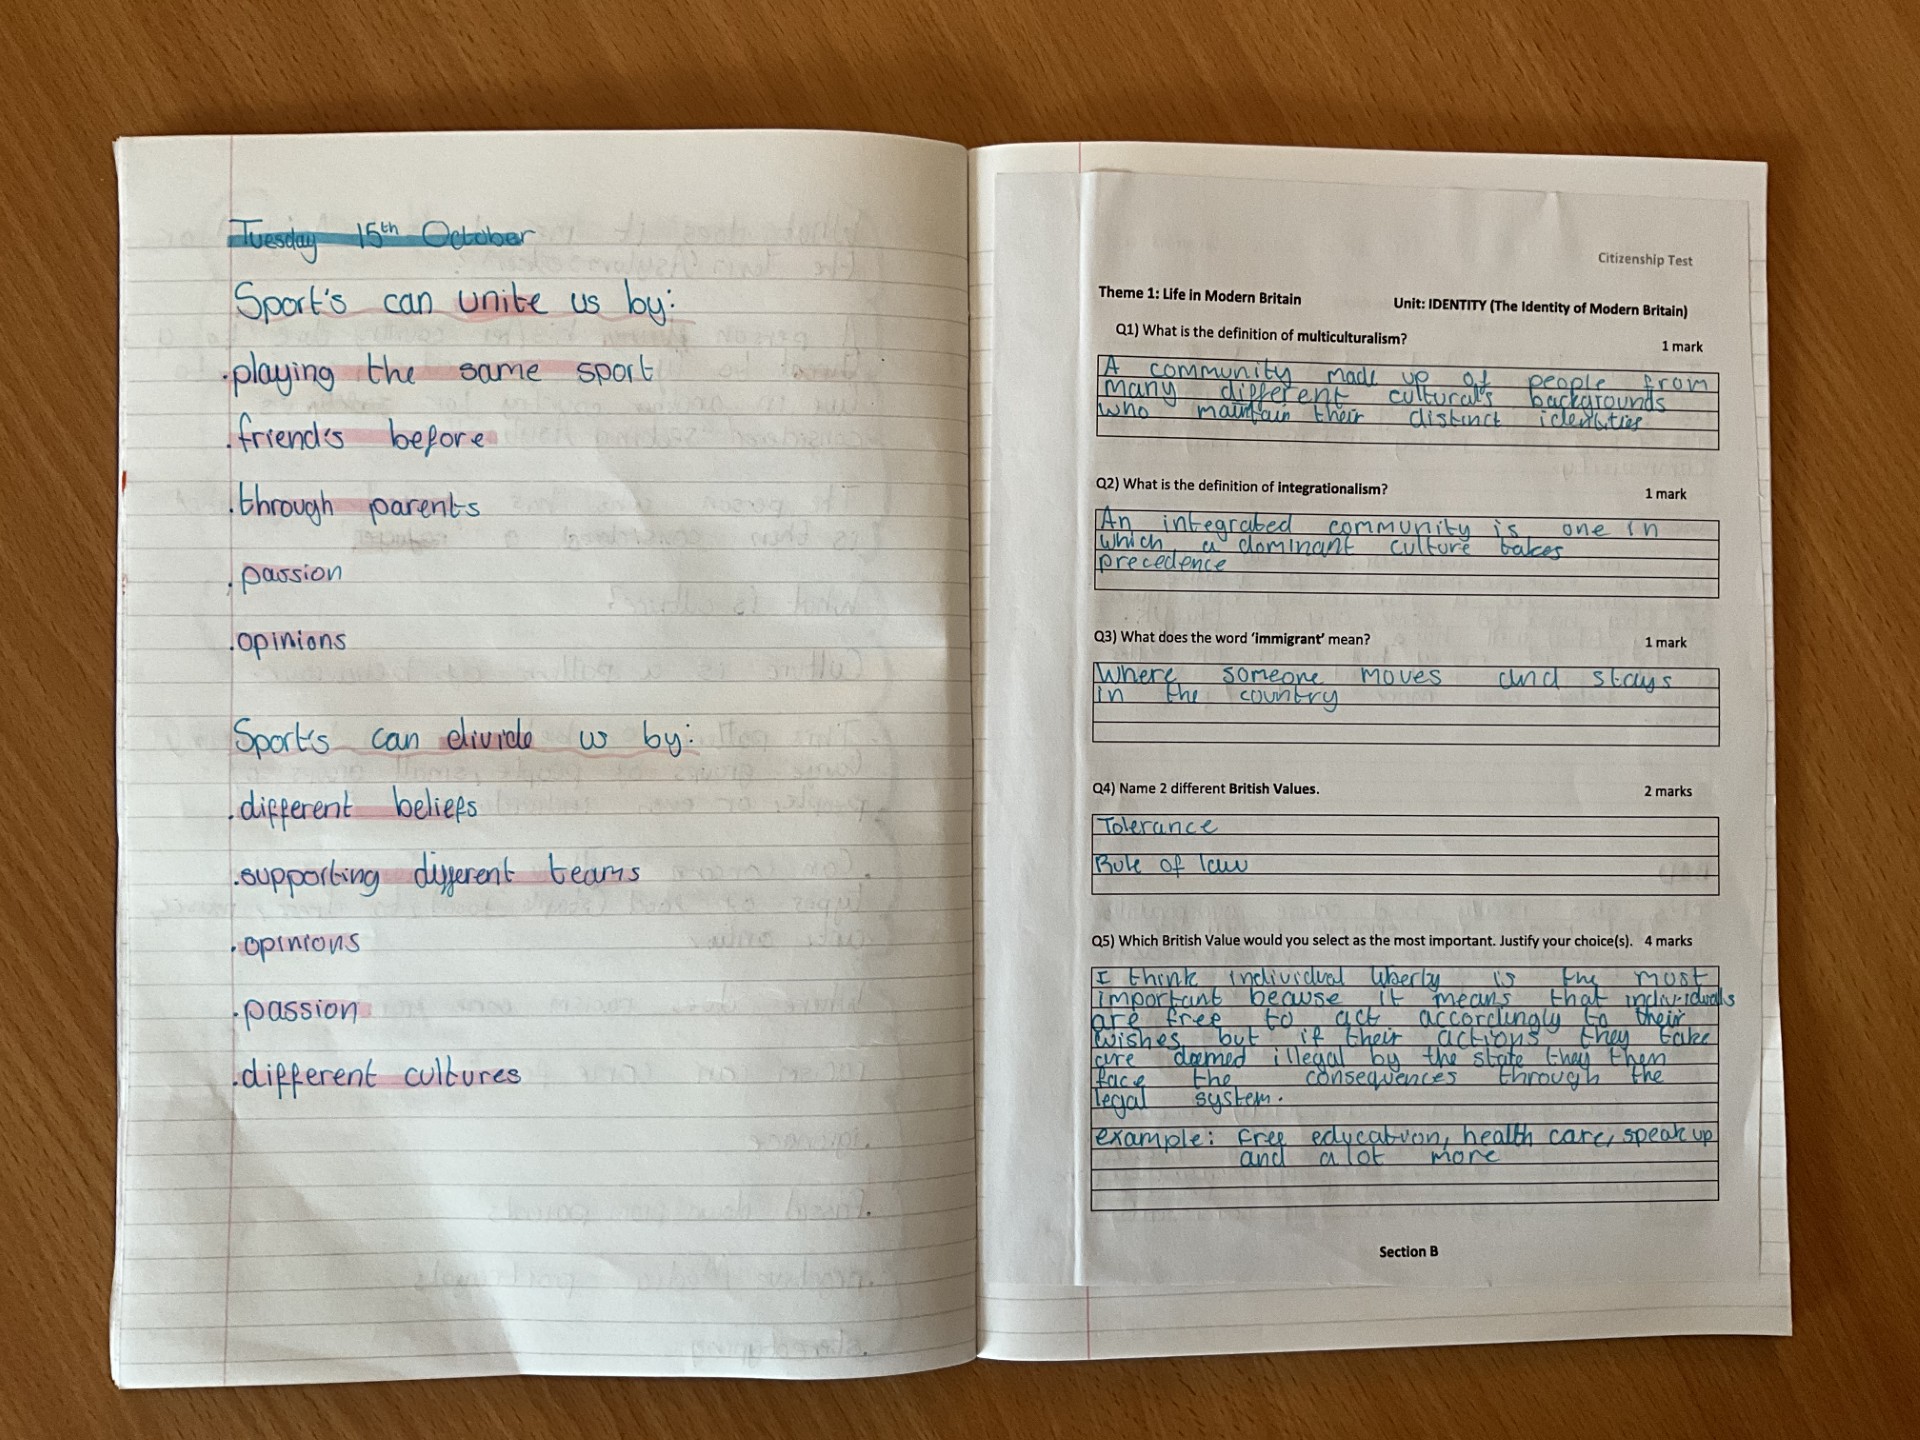 Tuesday 15th October
Sport's can unite us by:
.playing the same sport
.friend's before
.through parents
.passion
.opinions
Sport's can divide us by:
.different beliefs
.supporting different teams
.opinions
.passion
.different cultures
Citizenship Test
Theme 1: Life in Modern Britain Unit: IDENTITY (The Identity of Modern Britain)
Q1) What is the definition of multiculturalism?
1 mark
A community made up of people from
many different cultural's backgrounds
who maintain their distinct identities
Q2) What is the definition of integrationalism?
1 mark
An integrated community is one in
which a dominant culture takes
precedence
Q3) What does the word 'immigrant' mean?
1 mark
Where someone moves and stays
in the country
Q4) Name 2 different British Values.
2 marks
Tolerance
Rule of law
Q5) Which British Value would you select as the most important. Justify your choice(s). 4 marks
I think individual liberty is the most
important because it means that individuals
are free to act accordingly to their
wishes but if their actions they take
are deemed illegal by the state they then
face the consequences through the
legal system.
example: Free education, health care, speak up
and a lot more
Section B